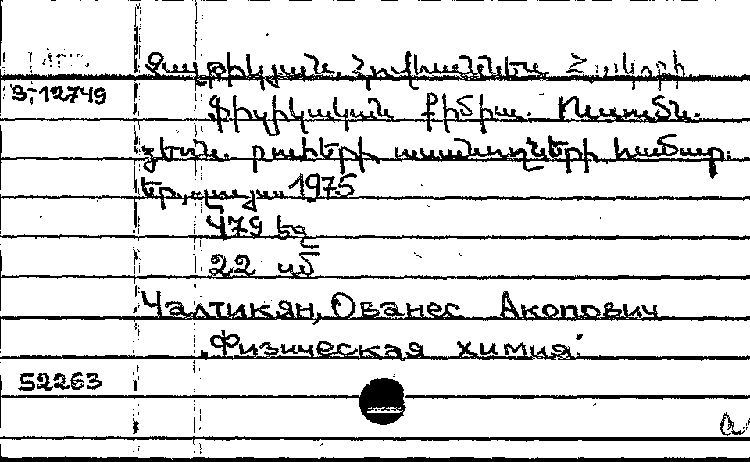 Չալթիկյան, Հովհաննես Հակոբի
Յ-12749
Ֆիզիկական քիմիա. Ուսումն.
ձեռն. բուհերի ուսանողների համար.
Եր., 1975
479 եզ
22 սմ
Чалтикян, Ованес Акопович
"Физическая химия".
52263